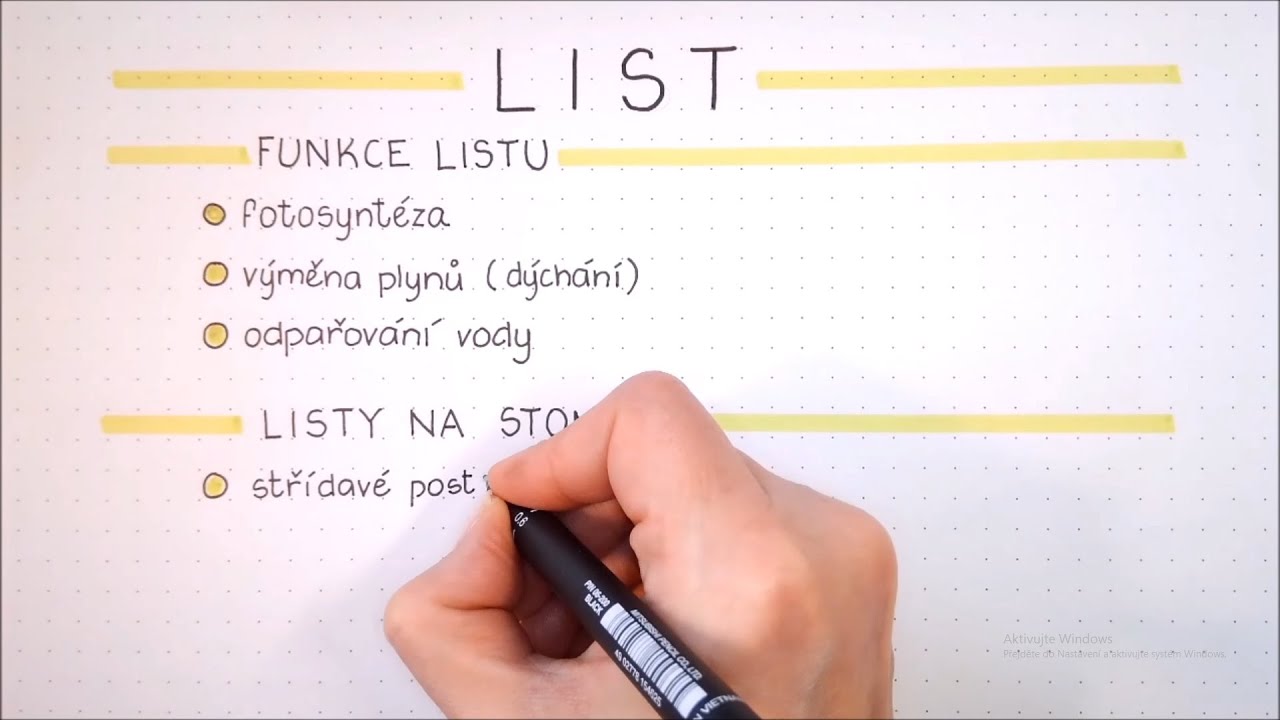 LIST
FUNKCE LISTU
fotosyntéza
výměna plynů (dýchání)
odpařování vody
LISTY NA
střídavé post
0.8
PIN 08-200
BLACK
MITSUBISHI PENCIL CO., LTD.
VIETNA
Aktivujte Windows
Přejděte do Nastavení a aktivujte systém Windows.